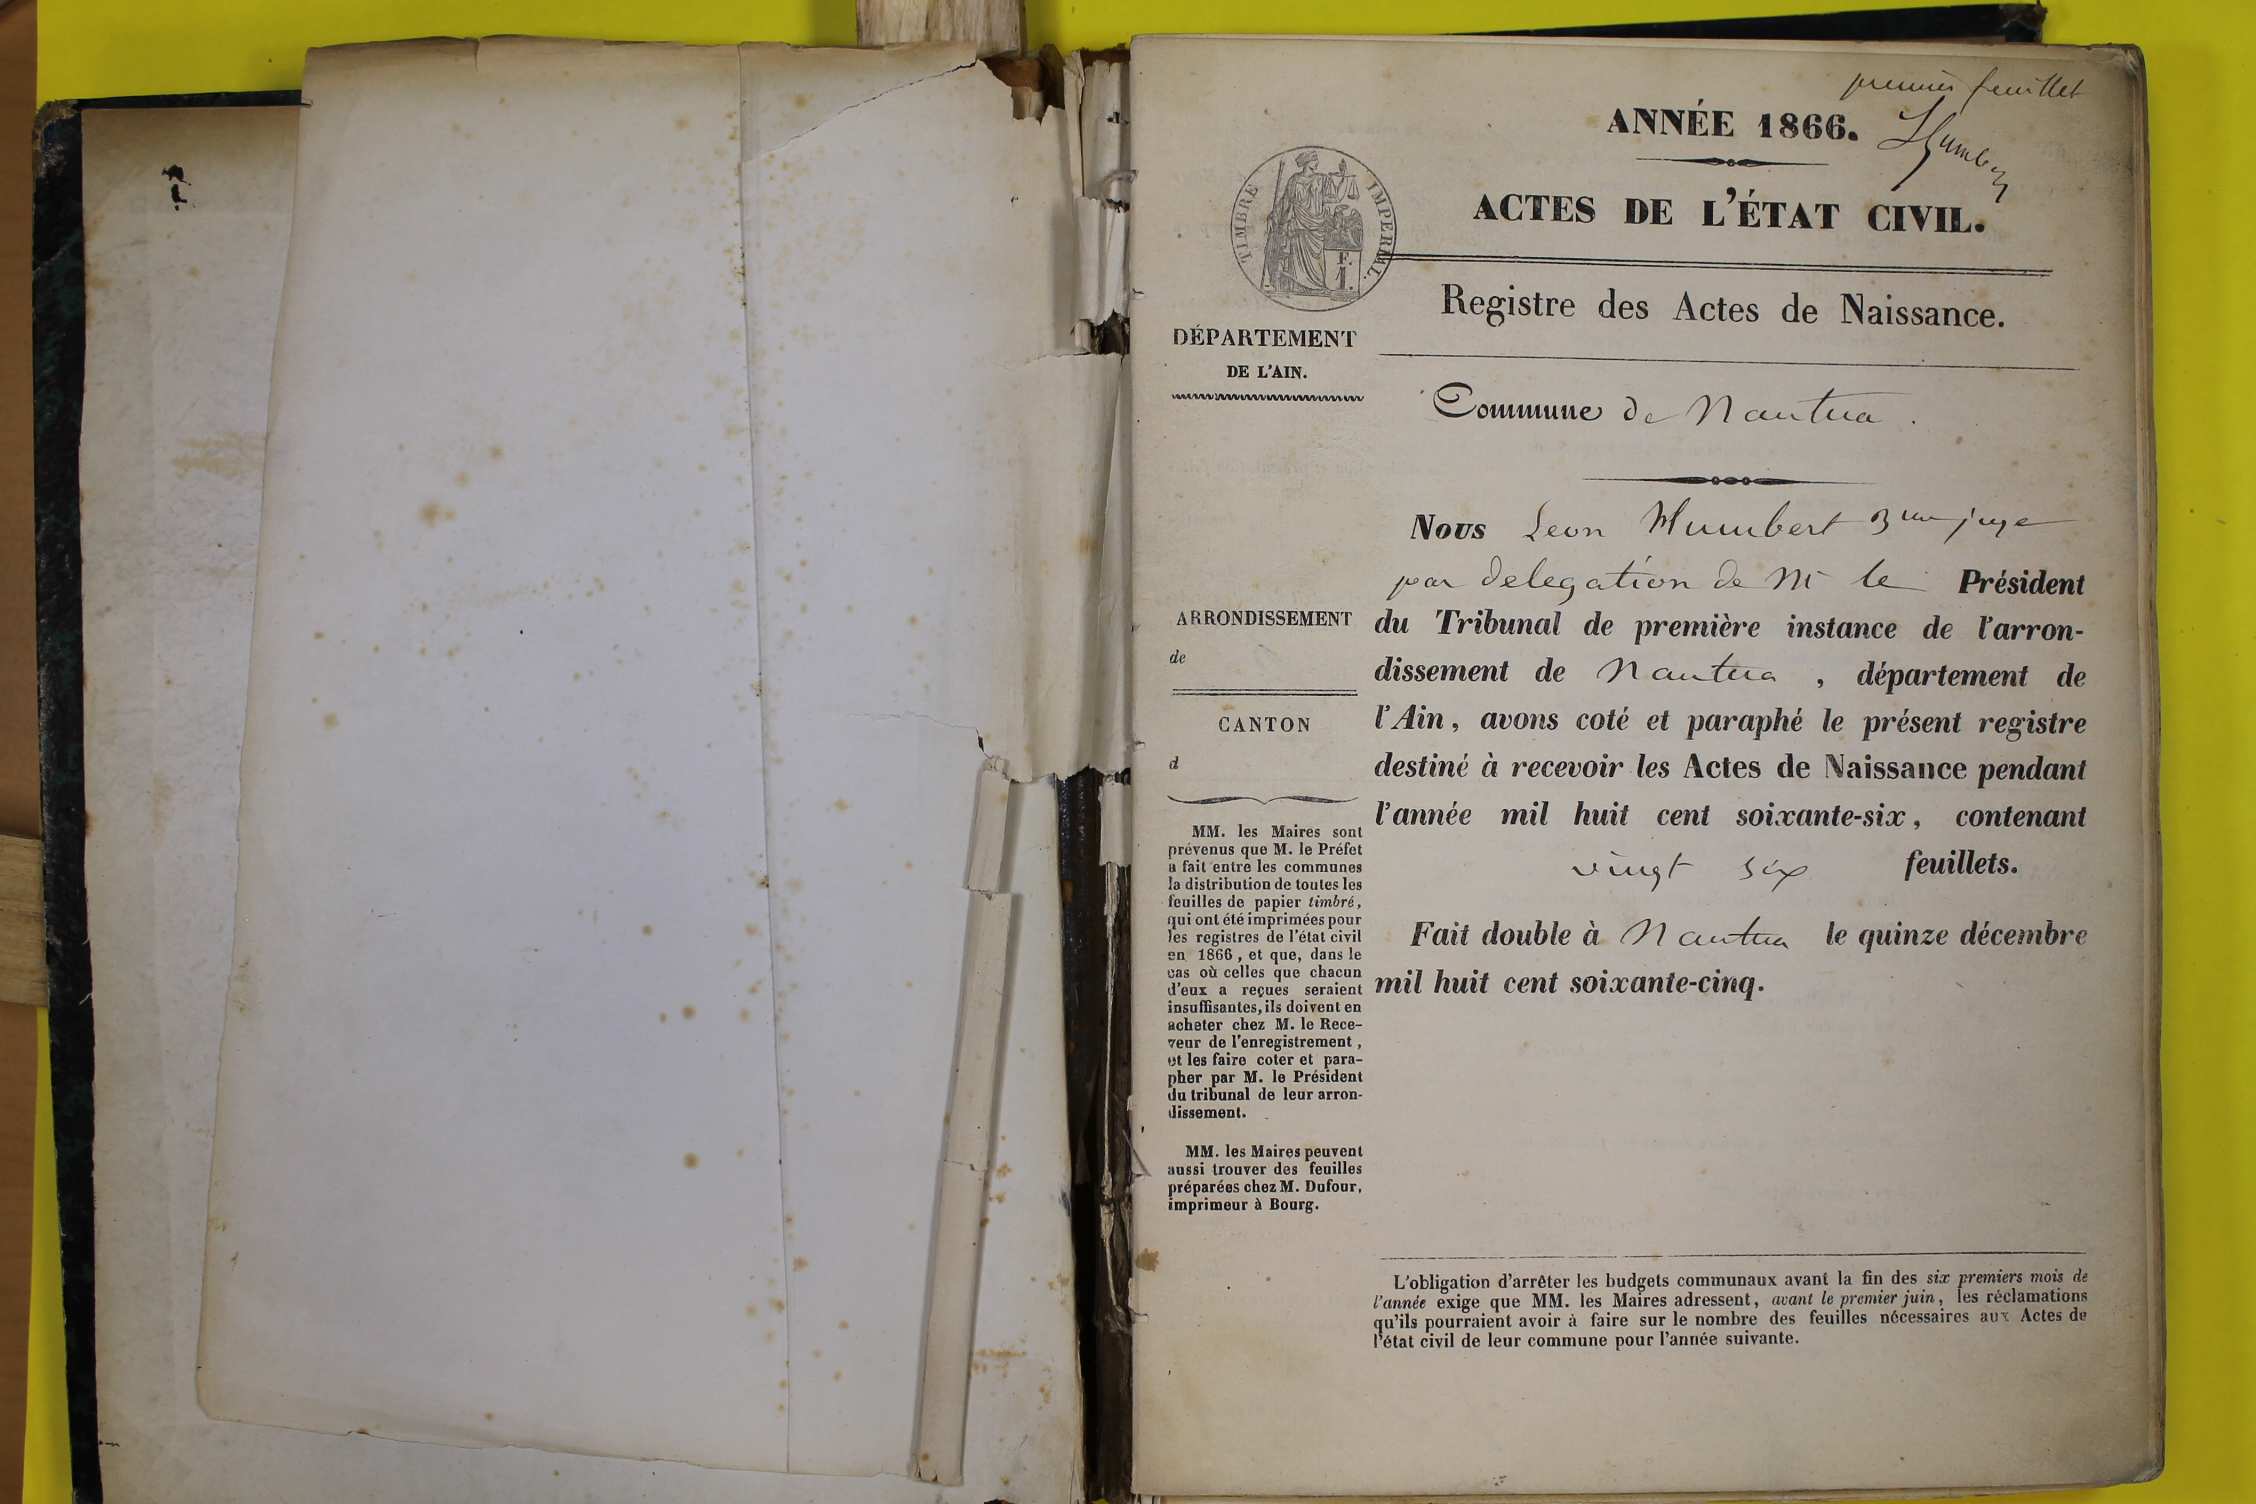 premier feuillet
ANNÉE 1866.
LHumbert
ACTES DE L'ÉTAT CIVIL.
TIMBRE IMPERIAL.
F.
1.
Registre des Actes de Naissance.
DÉPARTEMENT
DE L'AIN.
Commune de Nantua.
Nous Leon Humbert 3me juge
par delegation de Mr le Président
du Tribunal de première instance de l'arron-
dissement de Nantua, département de
l'Ain, avons coté et paraphé le présent registre
destiné à recevoir les Actes de Naissance pendant
l'année mil huit cent soixante-six, contenant
vingt six feuillets.
Fait double à Nantua le quinze décembre
mil huit cent soixante-cinq.
ARRONDISSEMENT
de
CANTON
d
MM. les Maires sont
prévenus que M. le Préfet
a fait entre les communes
la distribution de toutes les
feuilles de papier timbré,
qui ont été imprimées pour
les registres de l'état civil
en 1866, et que, dans le
cas où celles que chacun
d'eux a reçues seraient
insuffisantes, ils doivent en
acheter chez M. le Rece-
veur de l'enregistrement,
et les faire coter et para-
pher par M. le Président
du tribunal de leur arron-
dissement.
MM. les Maires peuvent
aussi trouver des feuilles
préparées chez M. Dufour,
imprimeur à Bourg.
L'obligation d'arrêter les budgets communaux avant la fin des six premiers mois de
l'année exige que MM. les Maires adressent, avant le premier juin, les réclamations
qu'ils pourraient avoir à faire sur le nombre des feuilles nécessaires aux Actes de
l'état civil de leur commune pour l'année suivante.